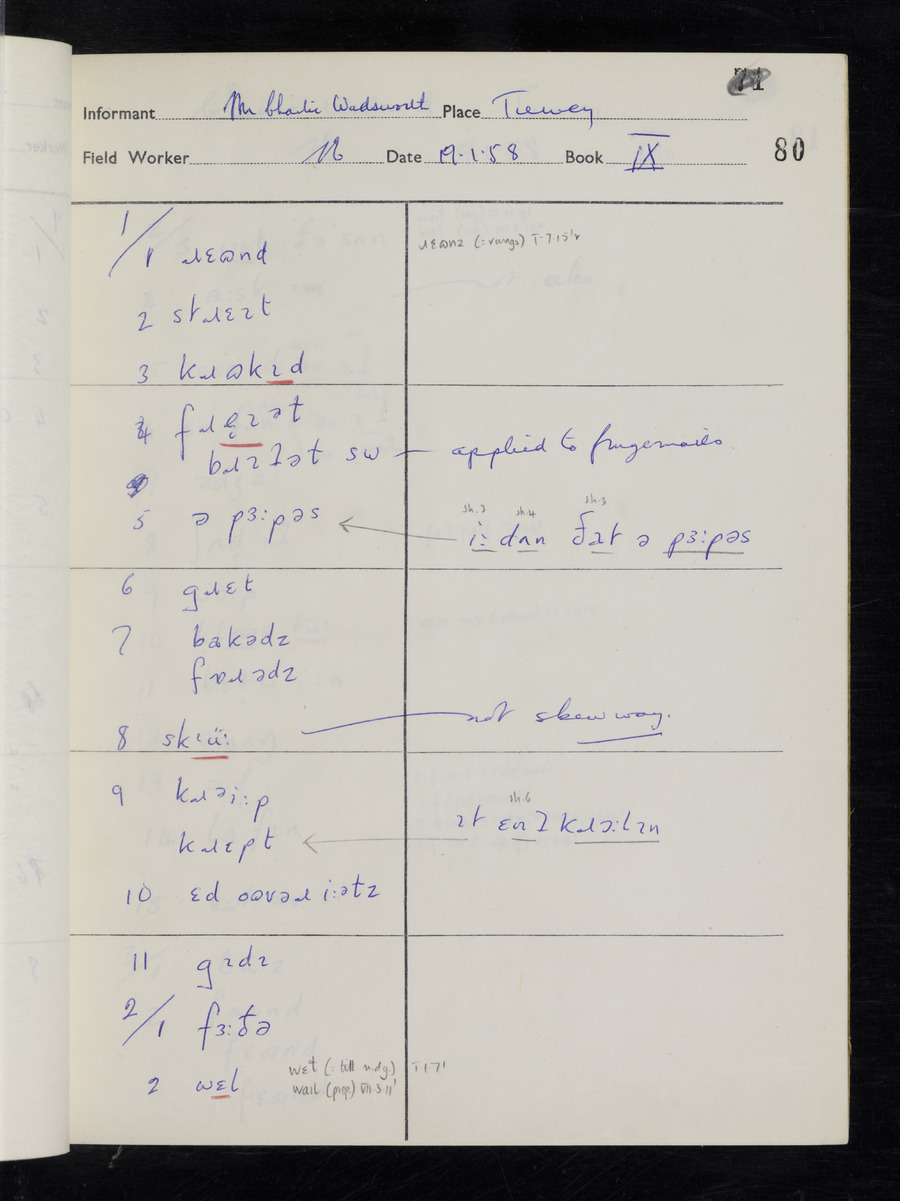 71
Informant Mr Charlie Wadsworth Place
Field Worker Date 19.1.58 Book IX
80
1/1 ɹɛʊnd
ɹɛʊnz (=rungs) I.7.15'r
2 stɹɛɪt
3 kɹʊkɪd
4 fɹɛ̝ɪət
bɹɪʔət sw — applied to fingernails
5 ə pɜːpəs
sh.3 sh.4 sh.5
iː dʌn ðat ə pɜːpəs
6 gɹɛt
7 bækədz
fɒɹədz
8 skɪüː — not skewway.
9 kɹəiːp
sh.6
ɪt ɛnʔ kɹɔːlɪn
kɹɛpt
10 ɛd oʊvəɹ iːətz
11 gɪdɪ
2/1 fɜːðə
2 wɛl
wɛt (= till n.dg.) I.1.7'
waɪl (prep.) VII.5.11'